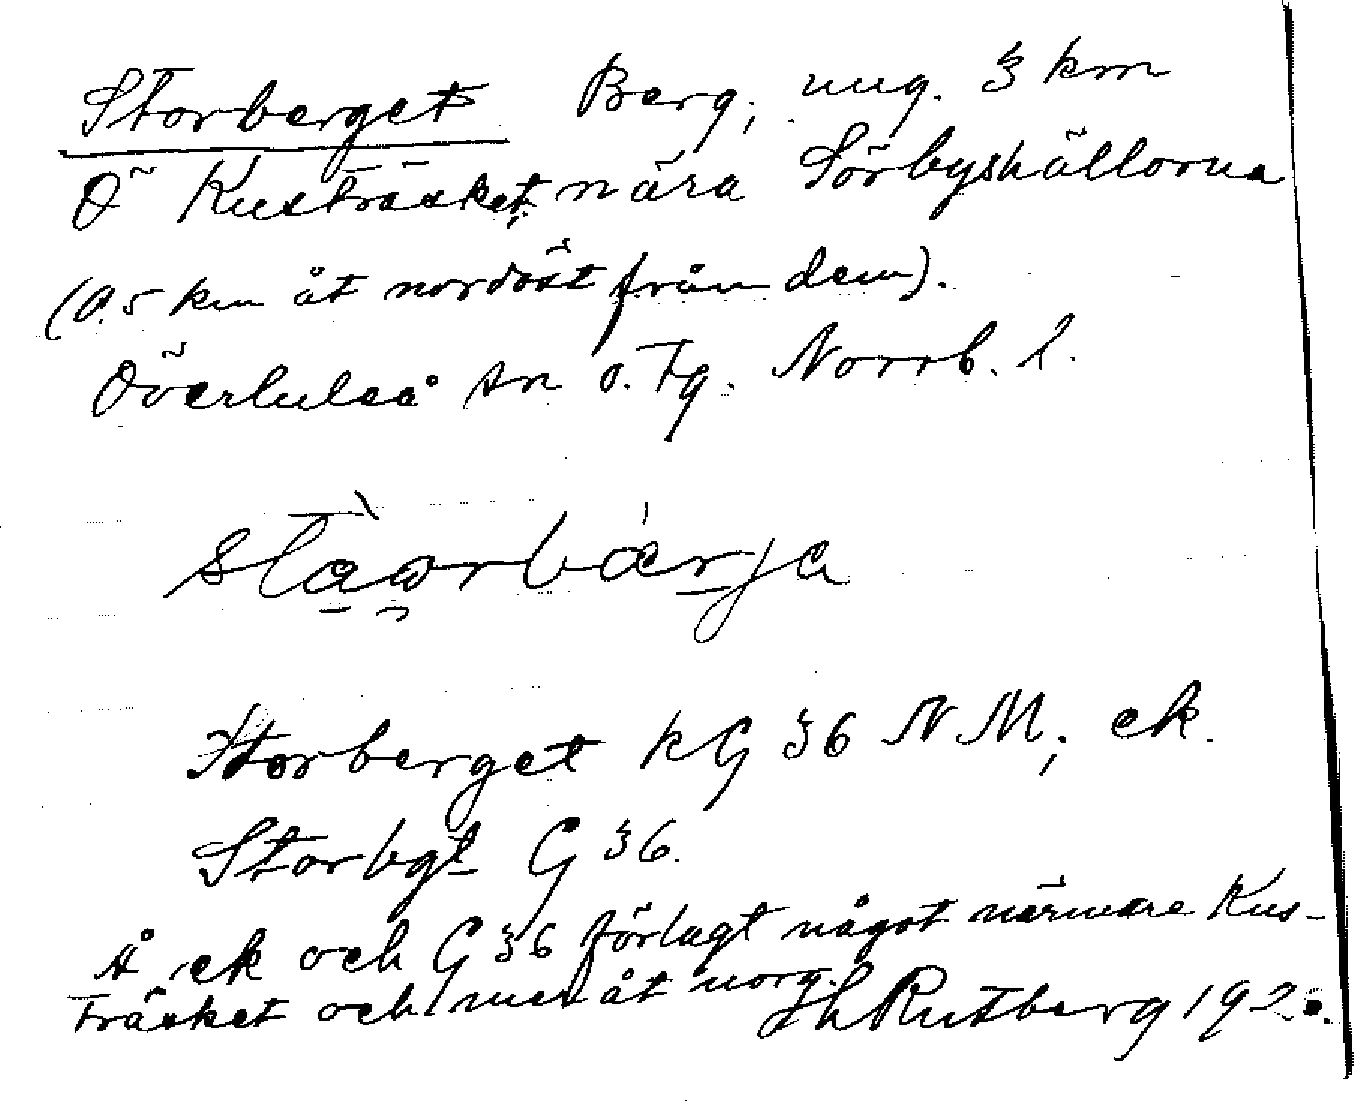 Storberget Berg, ung. 3 km
Ö Kusträsket, nära Sörbyshällorna
(0.5 km åt nordöst från dem).
Överluleå sn o. Tg. Norrb. l.
stàworbá̤rja
Storberget kG 36 NM, ek.
Storbgt G 36.
Å ek och G 36 förlagt något närmare Kus-
träsket och mer åt norg.
Hl Rutberg 192